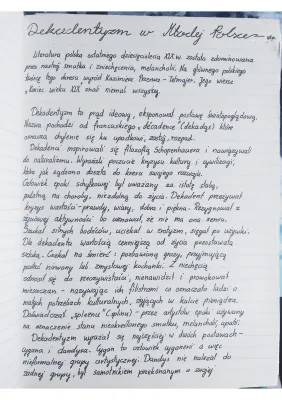 Dekadentyzm w Młodej Polsce
Literatura polska ostatniego dziesięciolecia XIX w. została zdominowana
przez nastrój smutku i zniechęcenia, melancholii. Na głównego polskiego
twórcę tego okresu wyrósł Kazimierz Przerwa-Tetmajer. Jego wiersz
„Koniec wieku XIX" znał niemal wszyscy.
Dekadentyzm to prąd ideowy, eksponował postawę światopoglądową.
Nazwa pochodzi od francuskiego „décadence" (dekadãs) które
oznacza chylenie się ku upadkowi, zastój, rozpad.
Dekadenci inspirowali się filozofią Schopenhauera i nawiązywali
do naturalizmu. Wyrażali poczucie kryzysu kultury i cywilizacji,
które jak sądzono doszła do kresu swojego rozwoju.
Człowiek epoki schyłkowej był uważany za istotę słabą,
podatną na choroby, niezdolną do życia. Dekadent przeżywał
kryzys wartości - prawdy, wiary, dobra i piękna. Rezygnował z
życiowej aktywności bo uznawał, że nie ma ona sensu.
Szukał silnych bodźców, uciekał w erotyzm, sięgał po używki.
Dla dekadenta wartością cenniejszą od życia pozostawała
sztuka. Czekał na śmierć i pozbawioną grozy, przyjmującą
postać nirwany lub zmysłowej kochanki. Z niechęcią
odnosił się do rzeczywistości, nienawidził i prowokował
mieszczan - nazywając ich filistrami co oznaczało ludzi o
małych potrzebach kulturalnych, żyjących w kulcie pieniądza.
Doświadczał „spleenu" (splinu) - przez artystów epoki używany
na oznaczenie stanu nieokreślonego smutku, melancholii, apatii.
Dekadentyzm wyrażał się najczęściej w dwóch postawach -
cygana i dandysa. Cygan to człowiek wygnany o więc
nieformalnej grupy artystycznej. Dandys nie należał do
żadnej grupy, był samotnikiem przekonanym o swojej